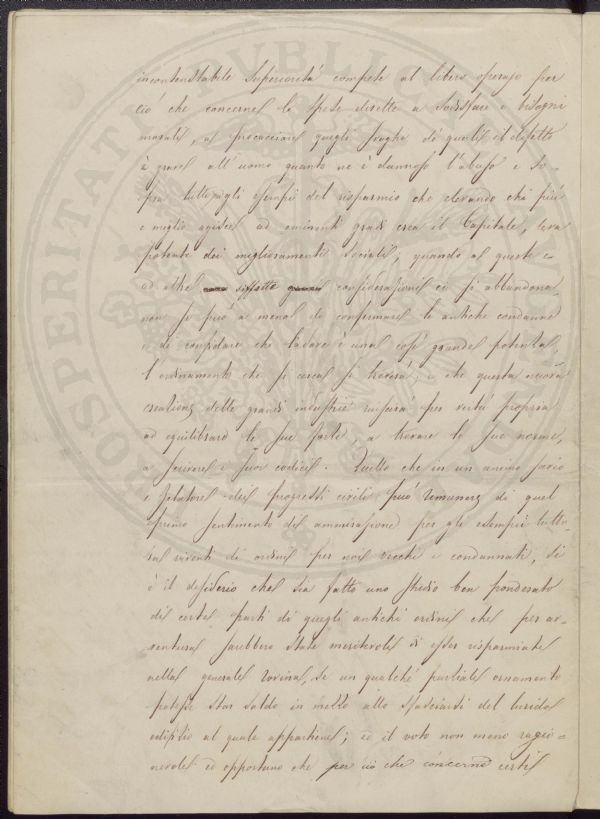 incontestabile superiorità compete al libero operajo per
ciò che concerne le spese dirette a sodisfare i bisogni
morali, a procacciare quegli svaghi di quali il difetto
è grave all'uomo quanto ne è dannoso l'abuso e so-
pra tutto gli esempi del risparmio che elevando chi più
e meglio agisce ad eminenti gradi crea il Capitale, leva
potente dei miglioramenti sociali; quando a queste e
ad altre siffatte considerazioni ci si abbandona,
non si può a meno di confermare le antiche condanne
e di confidare che laddove è una così grande potenza,
l'ordinamento che si cerca si troverà; e che questa nuova
creazione delle grandi industrie riuscirà per virtù propria
ad equilibrare le sue forze, a trovare le sue norme,
a scrivere i suoi codici. Quello che in un animo savio
e zelatore dei progressi civili può rimanere di quel
primo sentimento di ammirazione per gli esempii tutto-
ra viventi di ordini per noi vecchi e condannati, si
è il desiderio che sia fatto uno studio ben ponderato
di certe parti di quegli antichi ordini che per av-
ventura sarebbero state meritevoli di esser risparmiate
nella generale rovina, se un qualche parziale ornamento
potesse star saldo in mezzo allo sfasciarsi del lurido
edifizio al quale appartiene; ed il voto non meno ragio-
nevole ed opportuno che per ciò che concerne certi